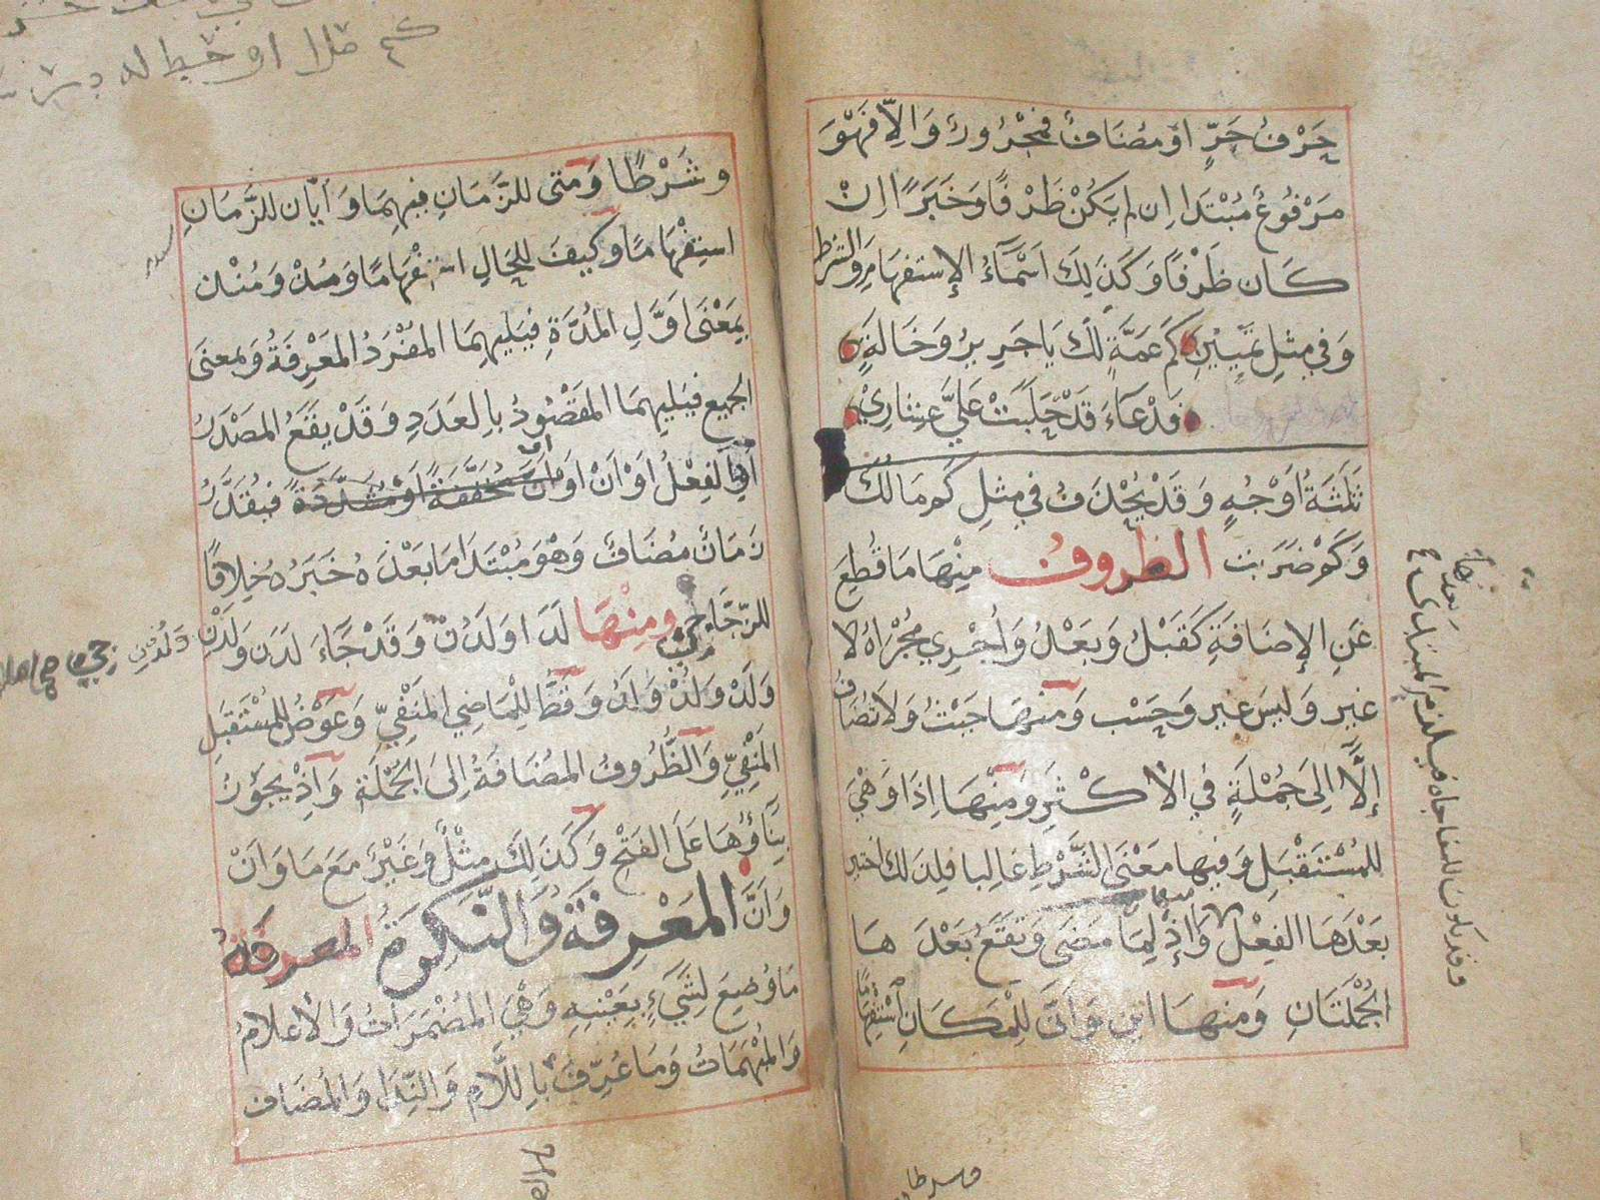 حَرْفُ جَرٍّ اوْ مُضَافٌ فَمَجْرُورٌ وَاِلاَّ فَهْوَ
مَرْفُوعٌ مُبْتَدَا اِن لم يَكُنْ ظَرْفًا وَخَبَرًا اِنْ
كَان ظَرْفًا وَكَذَلِكَ اَسْمَآءُ الاِستفهَامِ وَالشرْطِ
وَفي مِثلِ تَمْيِيْزِ كَم عَمَّةٍ لَكَ يَا جَرِيرُ وَخَالَةٍ
فَدْعَآءَ قَدْ حَلَبَتْ عَلَيَّ عِشَارِيْ
ثَلثَةُ اَوْجُهٍ وَقَدْ يُحْذَفُ في مِثلِ كَم مَالُكَ
وَكَمْ ضَرَبت الظروف مِنْهَا مَا قُطِعَ
عَنِ الاِضَافَةِ كَقَبْلُ وَبَعْدُ وَاُجْرِي مُجْرَاهُ لا
غير وَليسَ غير وَحَسْب وَمنهَا حَيْثُ وَلا تضَاف
اِلاَّ اِلى جُمْلَةٍ في الأكْثَرِ وَمِنْهَا اِذَا وَهْيَ
للمُسْتَقْبَلِ وَفيها مَعْنَى الشَّرْطِ غَالبا فلِذلك اختير
بَعْدَهَا الفِعْلُ وَاِذْ لِمَا مَضَى وَتقَعُ بَعْدَهَا
الجُمْلَتَانِ وَمنهَا اين وَاَنَّى لِلْمَكَانِ اسْتِفْهَامًا
وشَرْطًا وَمَتى للزَّمَانِ فِيهِمَا وَاَيَّان للزَّمَانِ
استِفْهَامًا وكيفَ للحَالِ استفْهَامًا وَمُذْ وَمُنْذ
بِمَعْنَى اَوَّلِ المُدَّةِ فيَلِيهِمَا المُفْرَدُ المَعْرِفَةُ وَبمعنى
الجَميع فيَلِيهِمَا المقْصُودُ بِالعَدَدِ وَقَدْ يقَعُ المصْدَرُ
اَوِ الفِعْلُ اَوْ اَنْ اَوْ اَنَّ مُخَفَّفَةً اَوْ مُشَدَّدَةً فيُقَدَّرُ
زمَانٌ مُضَافٌ وَهْوَ مُبْتَدَا مَا بَعْدَهُ خَبَرُهُ خِلافًا
للزَّجَّاجِ ومِنْهَا لَدَا وَلَدُنْ وَقَدْ جَآءَ لَدَن وَلَدْنِ
وَلَدْ وَلُدْ وَلَدُ وَقَطُّ لِلْمَاضِي المَنْفِيِّ وَعَوْضُ للمُسْتَقبَلِ
المَنْفِيِّ وَالظُّرُوفُ المضَافَةُ اِلىَ الجُمْلَةِ وَاِذْ يجَوْزُ
بِنَاؤُهَا عَلَى الفَتْحِ وَكَذَلِكَ مِثْلُ وَغَيْرُ مَعَ مَا وَاَنْ
وَاَنَّ المَعْرِفَةُ وَالنَّكِرَةُ المعرفَةُ
مَا وُضِعَ لِشَيْءٍ بِعَيْنِهِ وَهْيَ المُضْمَرَاتُ وَالأعْلاَمُ
وَالمُبْهَمَاتُ وَمَا عُرِّفَ بِاللاَّمِ وَالنِّدَا وَالمُضَاف